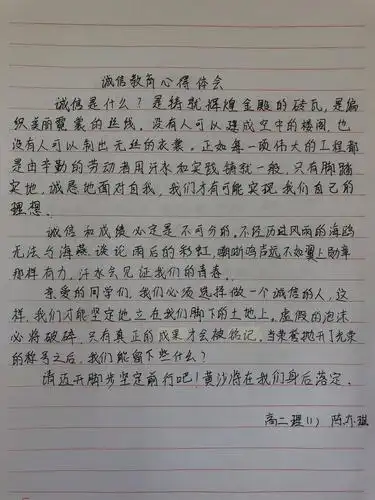 诚信教育心得体会
诚信是什么？是铸就辉煌金殿的砖瓦，是编
织美丽霓裳的丝线。没有人可以建成空中的楼阁，也
没有人可以制出无丝的衣裳。正如每一项伟大的工程都
是由辛勤的劳动者用汗水和实践铸就一般，只有脚踏
实地，诚恳地面对自我，我们才有可能实现我们自己的
理想。
诚信和成绩必定是不可分的，不经历过风雨的海鸥
无法与海燕谈论雨后的彩虹，嘶鸣声远不如翼上勋章
那样有力，汗水会见证我们的青春。
亲爱的同学们，我们必须选择做一个诚信的人，这
样，我们才能坚定地立在我们脚下的土地上，虚假的泡沫
必将破碎，只有真正的成果才会被铭记，当荣誉抛开了光荣
的称号之后，我们能留下些什么？
请迈开脚步坚定前行吧！黄沙将在我们身后落定。
高二理(1) 陈亦琪